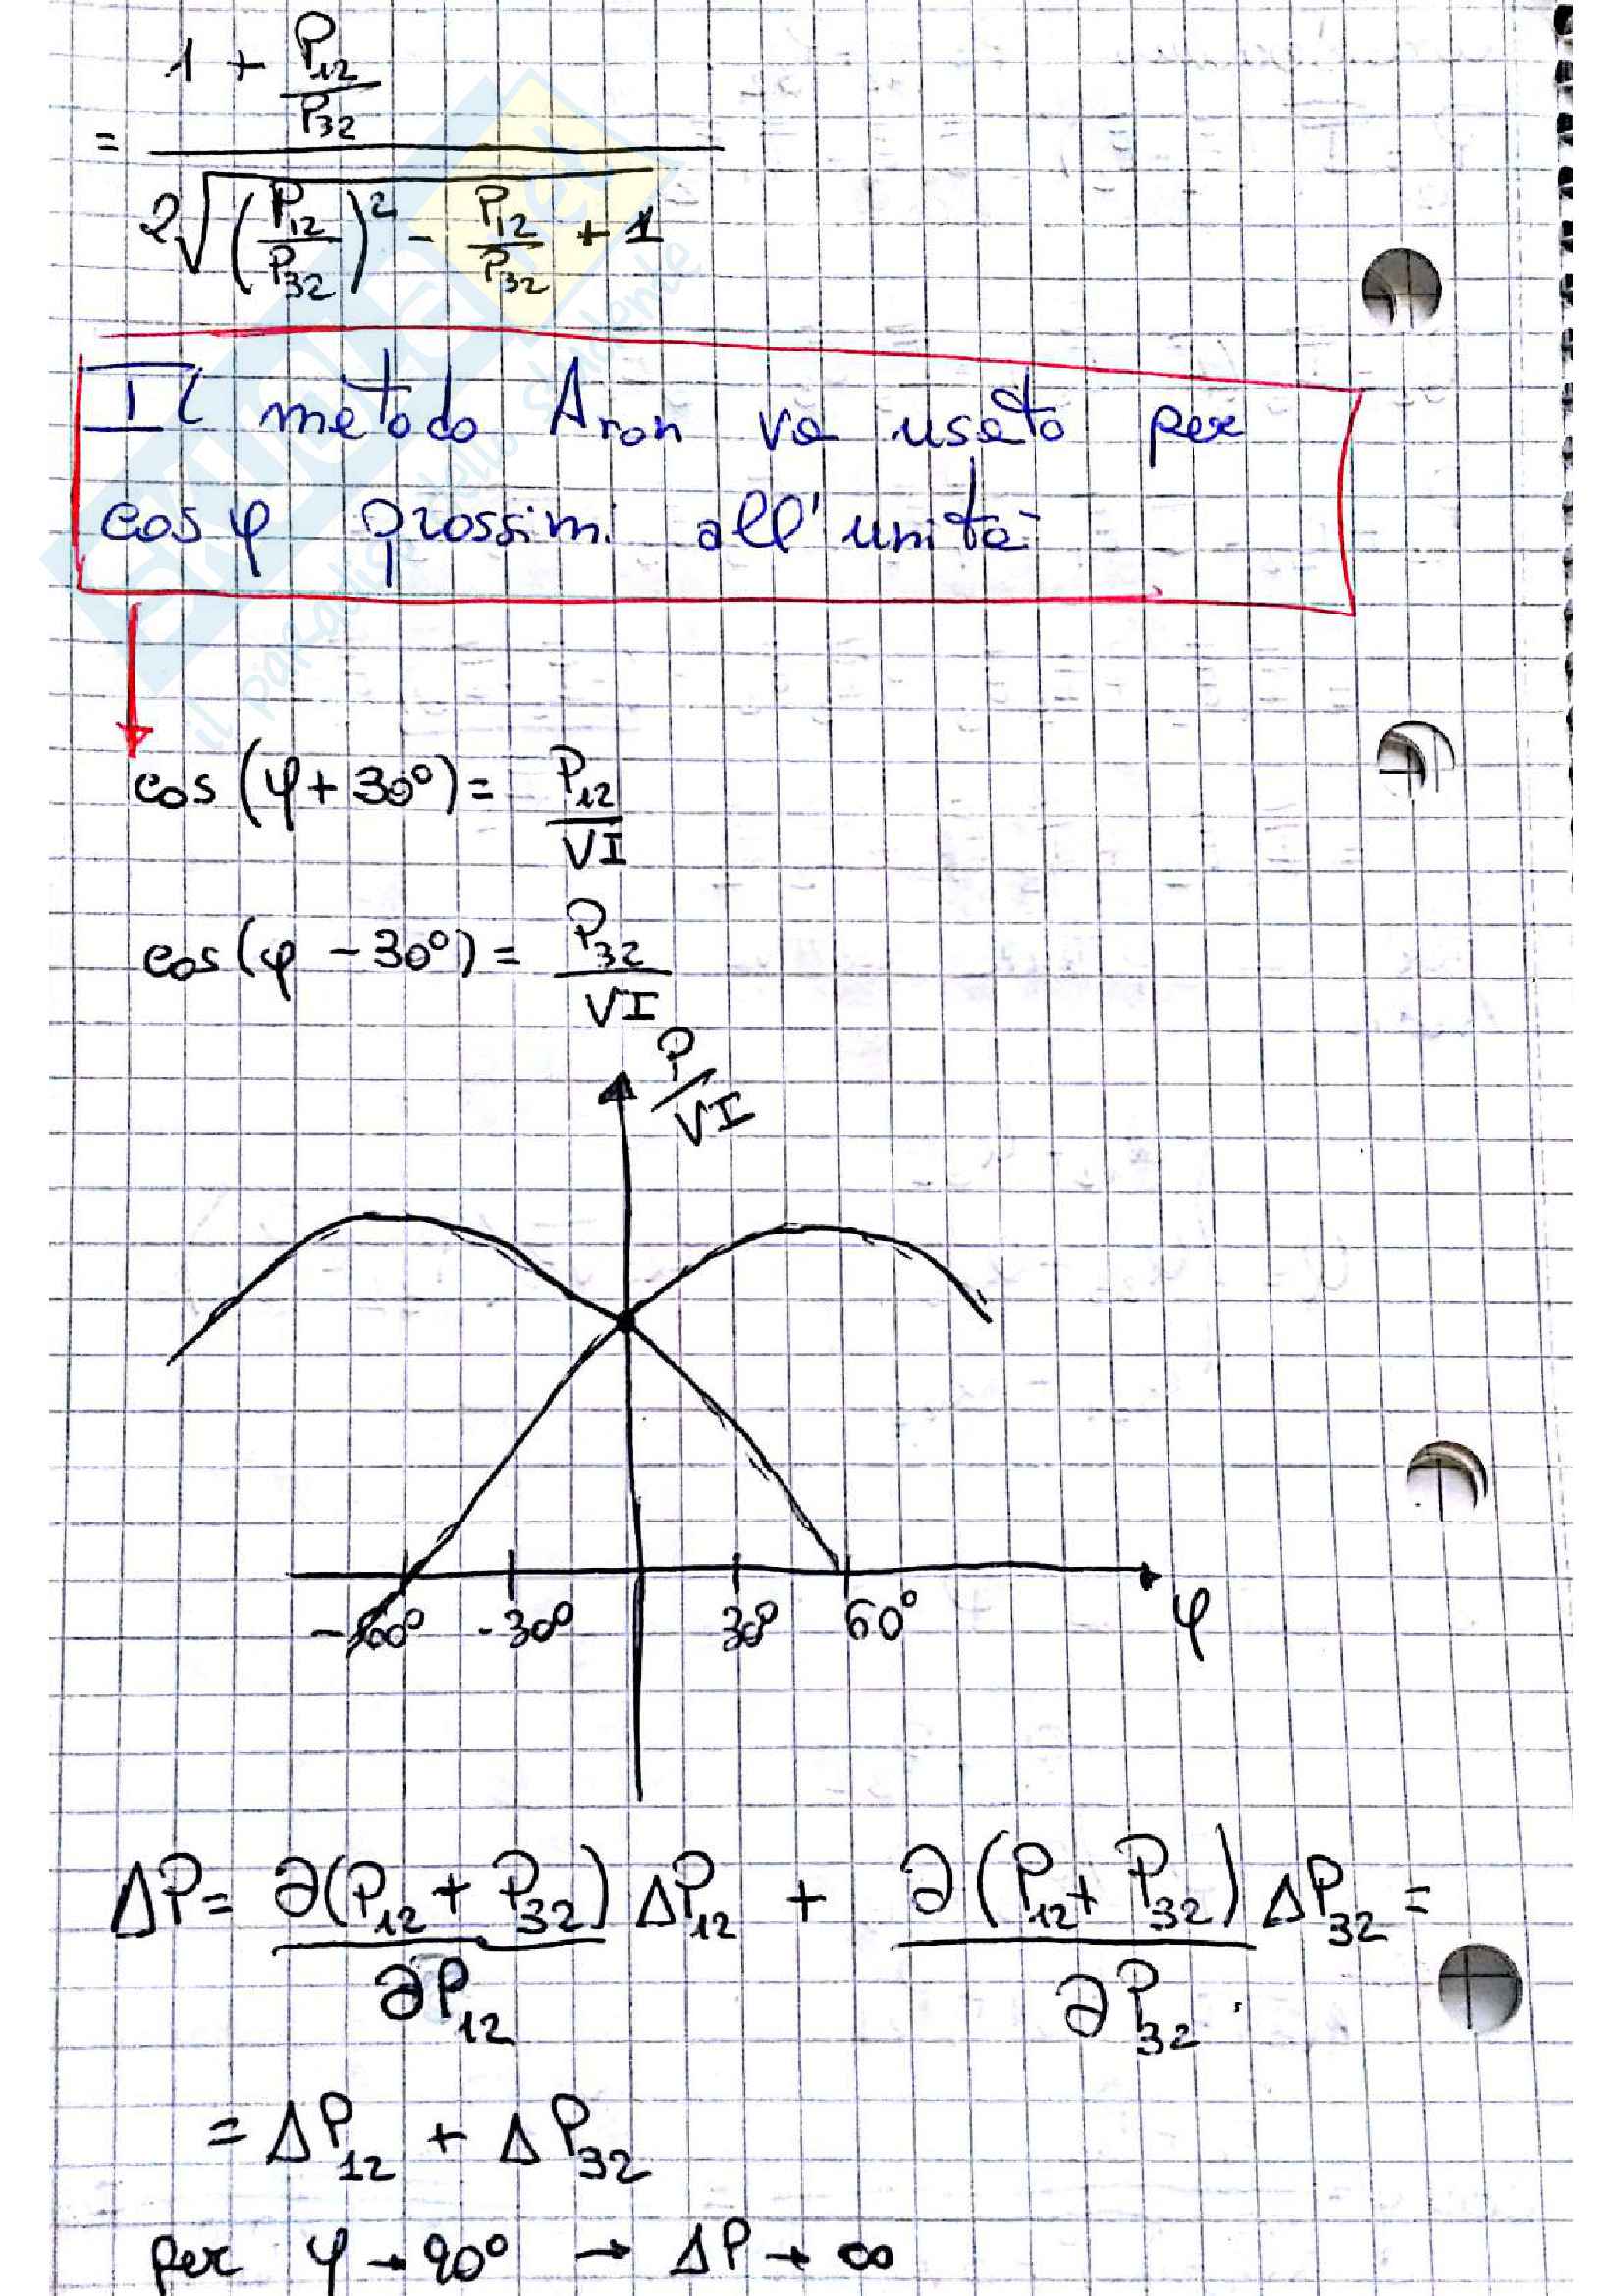 = (1 + P12/P32) / (2√((P12/P32)² - P12/P32 + 1))
Il metodo Aron va usato per
cos φ prossimi all'unità
cos (φ + 30°) = P12/VI
cos (φ - 30°) = P32/VI
P/VI
-60° -30° 30° 60° φ
ΔP = ∂(P12 + P32)/∂P12 ΔP12 + ∂(P12 + P32)/∂P32 ΔP32 =
= ΔP12 + ΔP32
per φ → 90° → ΔP → ∞
il paradiso dello studente